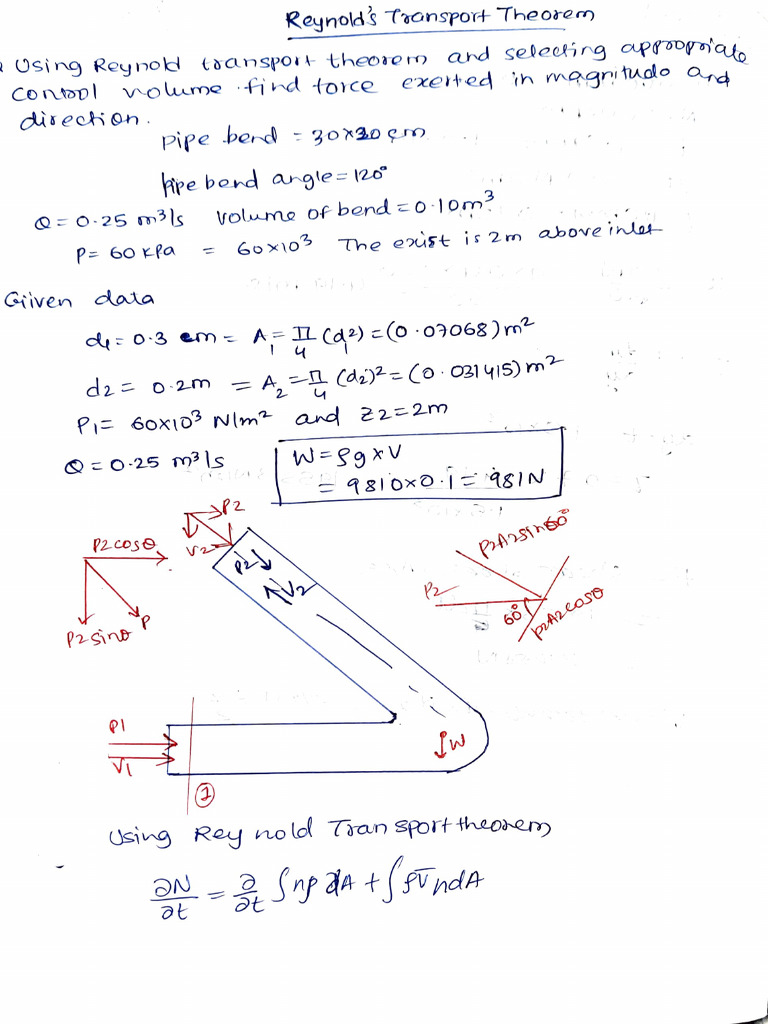 Reynold's Transport Theorem
Using Reynold transport theorem and selecting appropriate
control volume find force exerted in magnitude and
direction.
pipe bend = 30×20 cm
pipe bend angle = 120°
Q = 0.25 m³/s Volume of bend = 0.10m³
P = 60 kPa = 60×10³ The exist is 2m above inlet
Given data
d₁ = 0.3 cm = A₁ = π/4 (d₁²) = (0.07068) m²
d₂ = 0.2m = A₂ = π/4 (d₂)² = (0.031415) m²
P₁ = 60×10³ N/m² and Z₂ = 2m
Q = 0.25 m³/s
W = ρg×V
= 9810×0.1 = 981N
P2
V2
P2cosθ
P2sinθ
P
P2
V2
P2A2sin60°
P2
60°
P2A2cosθ
P1
V1
W
1
Using Reynold Transport theorem
∂N/∂t = ∂/∂t ∫ηρ dA + ∫ρV̄ndA